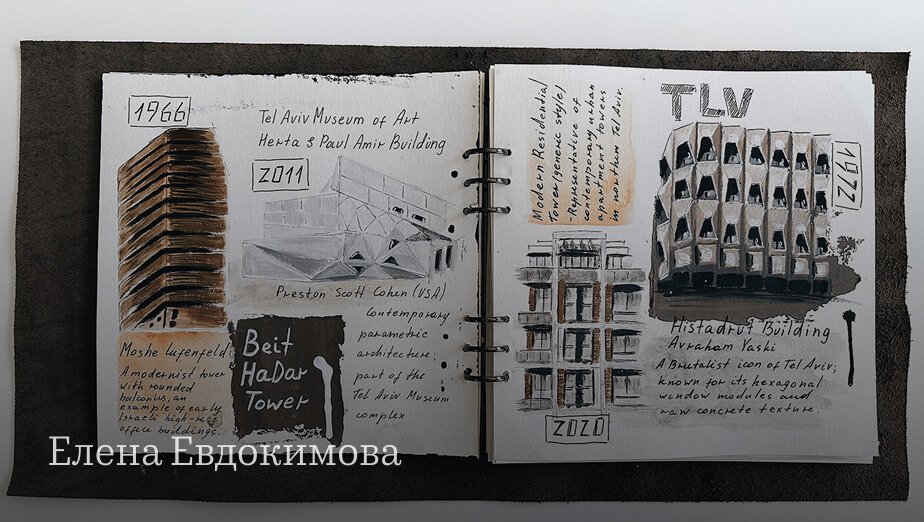 1966
Tel Aviv Museum of Art
Herta & Paul Amir Building
2011
Preston Scott Cohen (USA)
Contemporary
parametric
architecture;
part of the
Tel Aviv Museum
complex
Moshe Lufenfeld:
A modernist tower
with rounded
balconius, an
example of early
Israeli high-rise
office buildings.
Beit
HaDar
Tower
Modern Residential
Tower (generic style)
-Representative of
contemporary urban
apartment towers
in northern Tel Aviv.
2020
TLV
1972
Histadrut Building
Avraham Yaski
A Brutalist icon of Tel Aviv;
known for its hexagonal
window modules and
raw concrete texture.
Елена Евдокимова